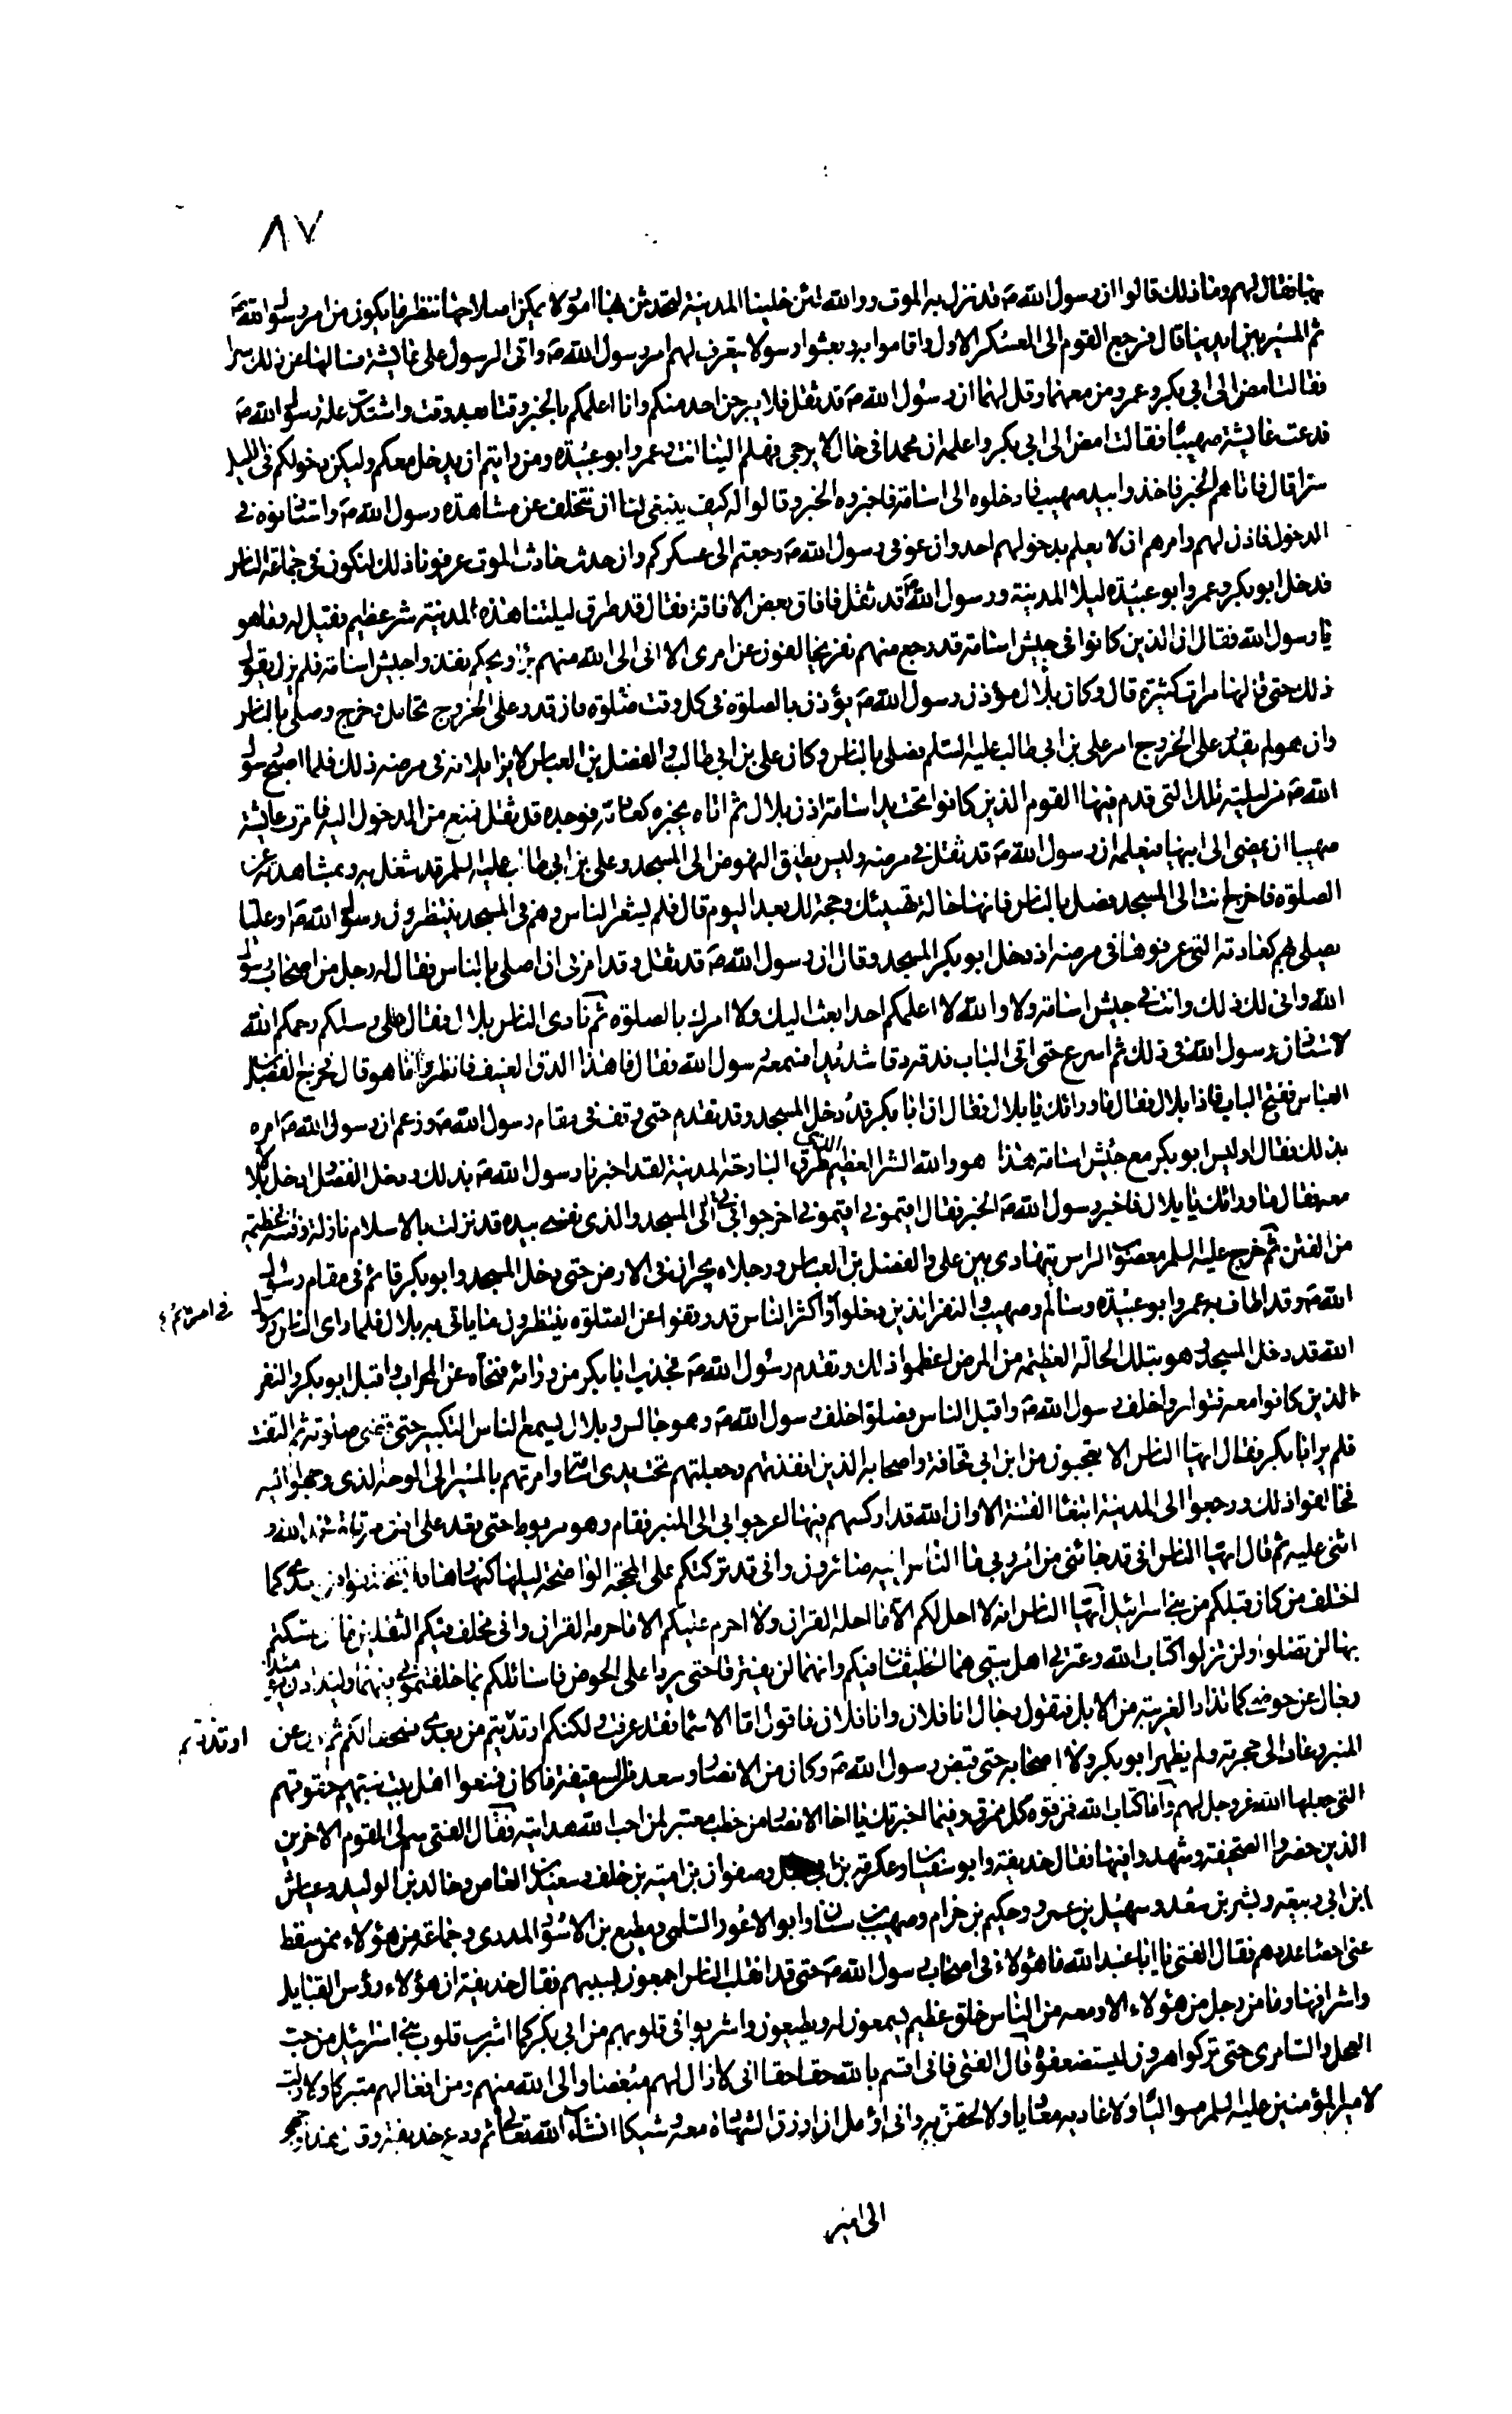 ٨٧
بها فقال لهم وما ذلك قالوا ان رسول الله ص قد نزل به الموت ووالله لئن خلينا المدينة لتحدثن بها امور لا يمكن اصلاحها ننتظر ما يكون من امر رسول الله ص
ثم المسير بين ايدينا قال فرجع القوم الى المعسكر الاول واقاموا به وبعثوا رسولا يتعرف لهم امر رسول الله ص واتى الرسول على عايشة فسالها عن ذلك سرا
فقالت امض الى ابى بكر وعمر ومن معهما وقل لهما ان رسول الله ص قد ثقل فلا يبرحن احد منكم وانا اعلمكم بالخبر وقتا بعد وقت واشتدت علة رسول الله ص
فدعت عايشة صهيبا فقالت امض الى ابى بكر واعلمه ان محمدا فى حال لا يرجى فهلم الينا انت وعمر وابو عبيدة ومن رايتم ان يدخل معكم وليكن دخولكم فى الليل
سرا قال فاتاهم الخبر فاخذوا بيد صهيب فادخلوه الى اسامة فاخبروه الخبر وقالوا له كيف ينبغى لنا ان نتخلف عن مشاهدة رسول الله ص واستاذنوه فى
الدخول فاذن لهم وامرهم ان لا يعلم بدخولهم احد وان عوفى رسول الله ص رجعتم الى عسكركم وان حدث حادث الموت عرفونا ذلك لنكون فى جماعة الناس
فدخل ابو بكر وعمر وابو عبيدة ليلا المدينة ورسول الله ص قد ثقل فافاق بعض الافاقة فقال قد طرق ليلتنا هذه المدينة شر عظيم فقيل له وما هو
يا رسول الله فقال ان الذين كانوا فى جيش اسامة قد رجع منهم نفر يخالفون عن امرى الا انى الى الله منهم برئ ويحكم نفذوا جيش اسامة فلم يزل يقول
ذلك حتى قالها مرات كثيرة قال وكان بلال مؤذن رسول الله ص يؤذن بالصلوة فى كل وقت صلوة فان قدر على الخروج تحامل وخرج وصلى بالناس
وان هو لم يقدر على الخروج امر على بن ابى طالب عليه السلم فصلى بالناس وكان على بن ابى طالب والفضل بن العباس لا يزايلانه فى مرضه ذلك فلما اصبح رسول
الله ص من ليلته تلك التى قدم فيها القوم الذين كانوا تحت يد اسامة اذن بلال ثم اتاه يخبره كعادته فوجده قد ثقل فمنع من الدخول اليه فامرت عايشة
صهيبا ان يمضى الى ابيها فيعلمه ان رسول الله ص قد ثقل فى مرضه وليس يطيق النهوض الى المسجد وعلى بن ابى طالب عليه السلم قد شغل به وبمشاهدته عن
الصلوة فاخرج انت الى المسجد فصل بالناس فانها حالة تهيئك وحجة لك بعد اليوم قال فلم يشعر الناس وهم فى المسجد ينتظرون رسول الله ص او عليا
يصلى بهم كعادته التى عرفوها فى مرضه اذ دخل ابو بكر المسجد وقال ان رسول الله ص قد ثقل وقد امرنى ان اصلى بالناس فقال له رجل من اصحاب رسول
الله وانى لك ذلك وانت فى جيش اسامة ولا والله لا اعلمكم احدا بعث اليك ولا امرك بالصلوة ثم نادى الناس بلال فقال على رسلكم رحمكم الله
لاستاذن رسول الله فى ذلك ثم اسرع حتى اتى الباب فدقه دقا شديدا فسمعه رسول الله فقال ما هذا الدق العنيف فانظروا ما هو قال فخرج الفضل بن
العباس ففتح الباب فاذا بلال فقال ما ورائك يا بلال فقال ان ابا بكر قد دخل المسجد وقد تقدم حتى وقف فى مقام رسول الله ص وزعم ان رسول الله ص امره
بذلك فقال اوليس ابو بكر مع جيش اسامة هذا هو والله الشر العظيم الذى طرق البارحة المدينة لقد اخبرنا رسول الله ص بذلك ودخل الفضل وادخل بلالا
معه فقال ما ورائك يا بلال فاخبر رسول الله ص الخبر فقال اقيمونى اقيمونى اخرجوا بى الى المسجد والذى نفسى بيده قد نزلت بالاسلام نازلة وفتنة عظيمة
من الفتن ثم خرج عليه السلم معصوب الراس يتهادى بين على والفضل بن العباس ورجلاه يجران فى الارض حتى دخل المسجد وابو بكر قائم فى مقام رسول
الله ص وقد اطاف به عمر وابو عبيدة وسالم وصهيب والنفر الذين دخلوا واكثر الناس قد وقفوا عن الصلوة ينتظرون ما ياتى به بلال فلما راى الناس رسول
الله قد دخل المسجد وهو بتلك الحالة العظيمة من المرض اعظموا ذلك وتقدم رسول الله ص فجذب ابا بكر من ردائه فنحاه عن المحراب واقبل ابو بكر والنفر
الذين كانوا معه فتواروا خلف رسول الله ص واقبل الناس فصلوا خلف رسول الله ص وهو جالس وبلال يسمع الناس التكبير حتى قضى صلوته ثم التفت
فلم ير ابا بكر فقال ايها الناس الا تعجبون من ابن ابى قحافة واصحابه الذين انفذتهم وجعلتهم تحت يدى اسامة وامرتهم بالمسير الى الوجه الذى وجهوا اليه
فخالفوا ذلك ورجعوا الى المدينة ابتغاء الفتنة الا وان الله قد اركسهم فيها اعرجوا بى الى المنبر فقام وهو مربوط حتى قعد على ادنى مرقاة فحمد الله و
اثنى عليه ثم قال ايها الناس انى قد جائنى من امر ربى ما الناس اليه صائرون وانى قد تركتكم على المحجة الواضحة ليلها كنهارها فلا تختلفوا من بعدى كما
اختلف من كان قبلكم من بنى اسرائيل ايها الناس انه لا احل لكم الا ما احله القران ولا احرم عليكم الا ما حرمه القران وانى مخلف فيكم الثقلين ما ان تمسكتم
بهما لن تضلوا ولن تزلوا كتاب الله وعترتى اهل بيتى هما الخليفتان فيكم وانهما لن يفترقا حتى يردا على الحوض فاسائلكم بماذا خلفتمونى فيهما وليذادن يومئذ
رجال عن حوضى كما تذاد الغريبة من الابل فتقول رجال انا فلان وانا فلان فاقول اما الاسماء فقد عرفت ولكنكم ارتديتم من بعدى فسحقا لكم ثم نزل عن
المنبر وعاد الى حجرته ولم يظهر ابو بكر ولا اصحابه حتى قبض رسول الله ص وكان من الانصار وسعد من السقيفة ما كان فمنعوا اهل بيت نبيهم حقوقهم
التى جعلها الله عز وجل لهم واما كتاب الله فمزقوه كل ممزق وفيما اخبرتك يا اخا الانصار من خطب معتبر لمن احب الله هدايته فقال الفتى سم لى القوم الاخرين
الذين حضروا الصحيفة وشهدوا فيها فقال حذيفة وابو سفيان وعكرمة بن ابى جهل وصفوان بن امية بن خلف وسعيد بن العاص وخالد بن الوليد وعياش
ابن ابى ربيعة وبشر بن سعد وسهيل بن عمرو وحكيم بن حزام وصهيب بن سنان وابو الاعور السلمى ومطيع بن الاسود المدرى وجماعة من هؤلاء ممن سقط
عنى احصاء عددهم فقال الفتى يا ابا عبد الله ما هؤلاء فى اصحاب رسول الله ص حتى قد انقلب الناس اجمعون بسببهم فقال حذيفة ان هؤلاء رؤس القبايل
واشرافها وما من رجل من هؤلاء الا ومعه من الناس خلق عظيم يسمعون له ويطيعون واشربوا فى قلوبهم من ابى بكر كما اشرب قلوب بنى اسرائيل من حب
العجل والسامرى حتى تركوا هرون ليستضعفوه قال الفتى فانى اقسم بالله حقا حقا انى لا ازال لهم مبغضا والى الله منهم ومن افعالهم متبرئا ولا زلت
لامير المؤمنين عليه السلم مواليا ولاعاديه معاديا ولالحقن به وانى اؤمل ان ارزق الشهادة معه وشيكا انشاء الله تعالى ثم ودع حذيفة
الى امير